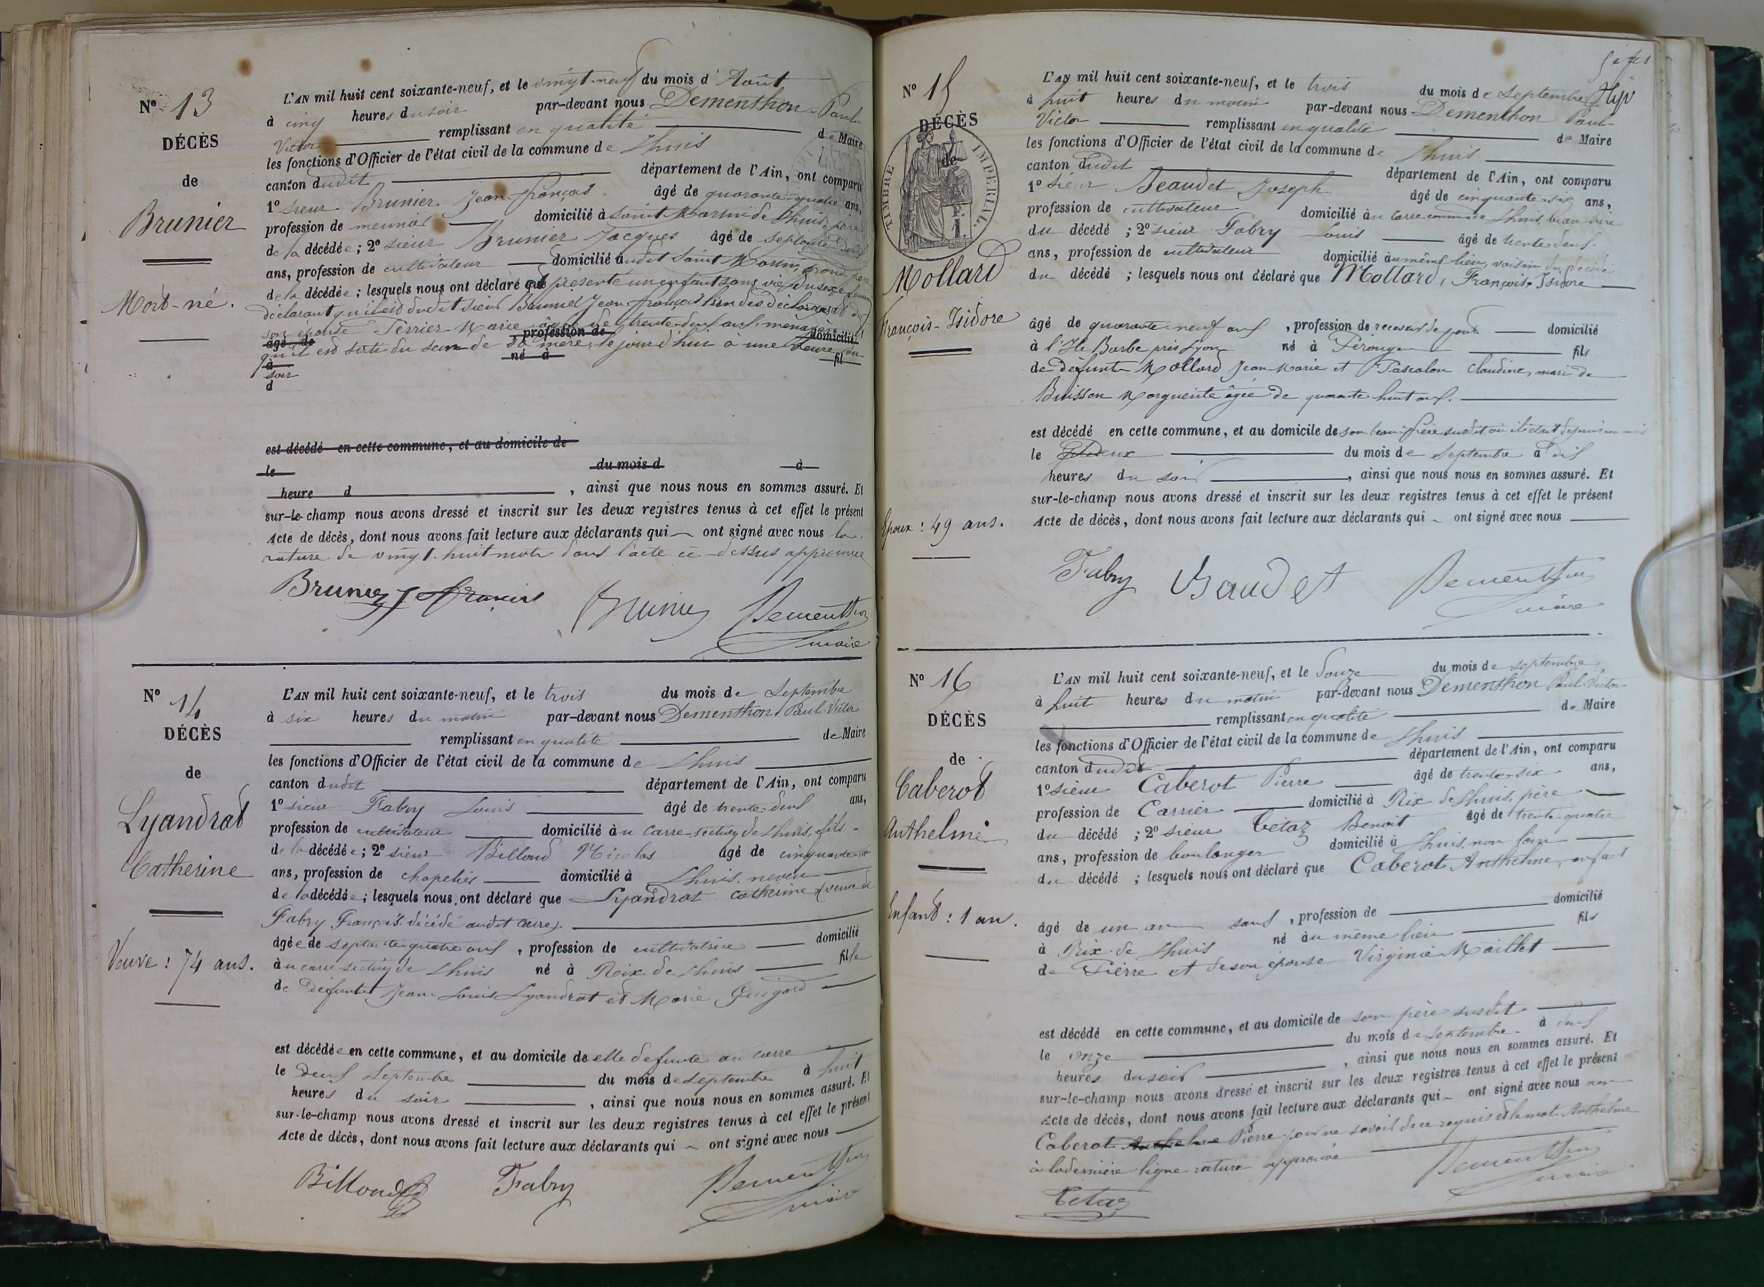 N° 13
DÉCÈS
de
Brunier
Mort-né.
L'AN mil huit cent soixante-neuf, et le vingt-neuf du mois d'Août
à cinq heures du soir par-devant nous Dementhon Paul
Victor remplissant en qualité de Maire
les fonctions d'Officier de l'état civil de la commune de Lhuis
canton dudit département de l'Ain, ont comparu
1° sieur Brunier Jean françois âgé de quarante quatre ans,
profession de domicilié à Saint Martin de Lhuis, père
de la décédée; 2° sieur Brunier Jacques âgé de septante
ans, profession de cultivateur domicilié audit Saint Martin, grand père
de la décédée; lesquels nous ont déclaré que présenté un enfant sans vie du sexe
déclarant qu'il est dudit sieur Brunier Jean françois l'un des déclarants et de
son épouse Perrier Marie âgée de trente-deux ans ménagère et
âgé de , profession de domicilié
qu'il est sorti du sein de sa mère, le jourd'hui à une heure du
à né à fil
soir
d
est décédé en cette commune, et au domicile de
le du mois d à
heure d , ainsi que nous nous en sommes assuré. Et
sur-le-champ nous avons dressé et inscrit sur les deux registres tenus à cet effet le présent
Acte de décès, dont nous avons fait lecture aux déclarants qui ont signé avec nous la
rature de vingt-huit mots dans l'acte ci-dessus approuvée
Brunier J françois Brunier Dementhon
maire
N° 14
DÉCÈS
de
Lyandrat
Catherine
Veuve : 74 ans.
L'AN mil huit cent soixante-neuf, et le trois du mois de Septembre
à six heures du matin par-devant nous Dementhon Paul Victor
remplissant en qualité de Maire
les fonctions d'Officier de l'état civil de la commune de Lhuis
canton dudit département de l'Ain, ont comparu
1° sieur Fabry Louis âgé de trente-deux ans,
profession de cultivateur domicilié au Carre section de Lhuis, fils
de la décédée; 2° sieur Billoud Nicolas âgé de cinquante
ans, profession de chapelier domicilié à Lhuis, neveu
de la décédée; lesquels nous ont déclaré que Lyandrat Catherine (veuve de
Fabry François décédé audit Carre)
âgée de septante quatre ans, profession de cultivatrice domicilié
au Carre section de Lhuis né à Rix de Lhuis fille
de Défunts Jean Louis Lyandrat et Marie Guigard
est décédée en cette commune, et au domicile de elle défunte au Carre
le deux Septembre du mois de Septembre à huit
heures du soir , ainsi que nous nous en sommes assuré. Et
sur-le-champ nous avons dressé et inscrit sur les deux registres tenus à cet effet le présent
Acte de décès, dont nous avons fait lecture aux déclarants qui ont signé avec nous
Billoud Fabry Dementhon
maire
N° 15
DÉCÈS
de
TIMBRE IMPÉRIAL
Mollard
François-Isidore
Epoux : 49 ans.
L'AN mil huit cent soixante-neuf, et le trois du mois de Septembre
à huit heures du matin par-devant nous Dementhon Paul
Victor remplissant en qualité de Maire
les fonctions d'Officier de l'état civil de la commune de Lhuis
canton dudit département de l'Ain, ont comparu
1° sieur Beaudet Joseph âgé de cinquante ans,
profession de cultivateur domicilié au Carre commune Lhuis beau-frère
du décédé; 2° sieur Fabry Louis âgé de trente-deux
ans, profession de cultivateur domicilié au même lieu, voisin du décédé
du décédé; lesquels nous ont déclaré que Mollard, François-Isidore
âgé de quarante-neuf ans, profession de receveur de pont domicilié
à l'Ile Barbe près Lyon né à Pérouges fils
de Défunts Mollard Jean-Marie et Pascalon Claudine, mari de
Buisson Marguerite âgée de quarante huit ans.
est décédé en cette commune, et au domicile de son beau-frère susdit où il était depuis
le Deux du mois de Septembre à
heures du soir , ainsi que nous nous en sommes assuré. Et
sur-le-champ nous avons dressé et inscrit sur les deux registres tenus à cet effet le présent
Acte de décès, dont nous avons fait lecture aux déclarants qui ont signé avec nous
Fabry Baudet Dementhon
maire
N° 16
DÉCÈS
de
Caberot
Anthelme
Enfant : 1 an.
L'AN mil huit cent soixante-neuf, et le douze du mois de septembre
à huit heures du matin par-devant nous Dementhon Paul Victor
remplissant en qualité de Maire
les fonctions d'Officier de l'état civil de la commune de Lhuis
canton dudit département de l'Ain, ont comparu
1° sieur Caberot Pierre âgé de trente-six ans,
profession de Carrier domicilié à Rix de Lhuis, père
du décédé; 2° sieur Tetaz Benoît âgé de trente-quatre
ans, profession de boulanger domicilié à Lhuis, non
du décédé; lesquels nous ont déclaré que Caberot Anthelme, enfant
âgé de un an sans, profession de domicilié
à Rix de Lhuis né au même lieu fils
de Pierre et de son épouse Virginie Maillet
est décédé en cette commune, et au domicile de son père susdit
le onze du mois de Septembre à
heures du soir , ainsi que nous nous en sommes assuré. Et
sur-le-champ nous avons dressé et inscrit sur les deux registres tenus à cet effet le présent
Acte de décès, dont nous avons fait lecture aux déclarants qui ont signé avec nous non
Caberot Anthelme Pierre pour ne savoir de ce requis et le mot Anthelme
à la dernière ligne raturé approuvé
Tetaz Dementhon
maire